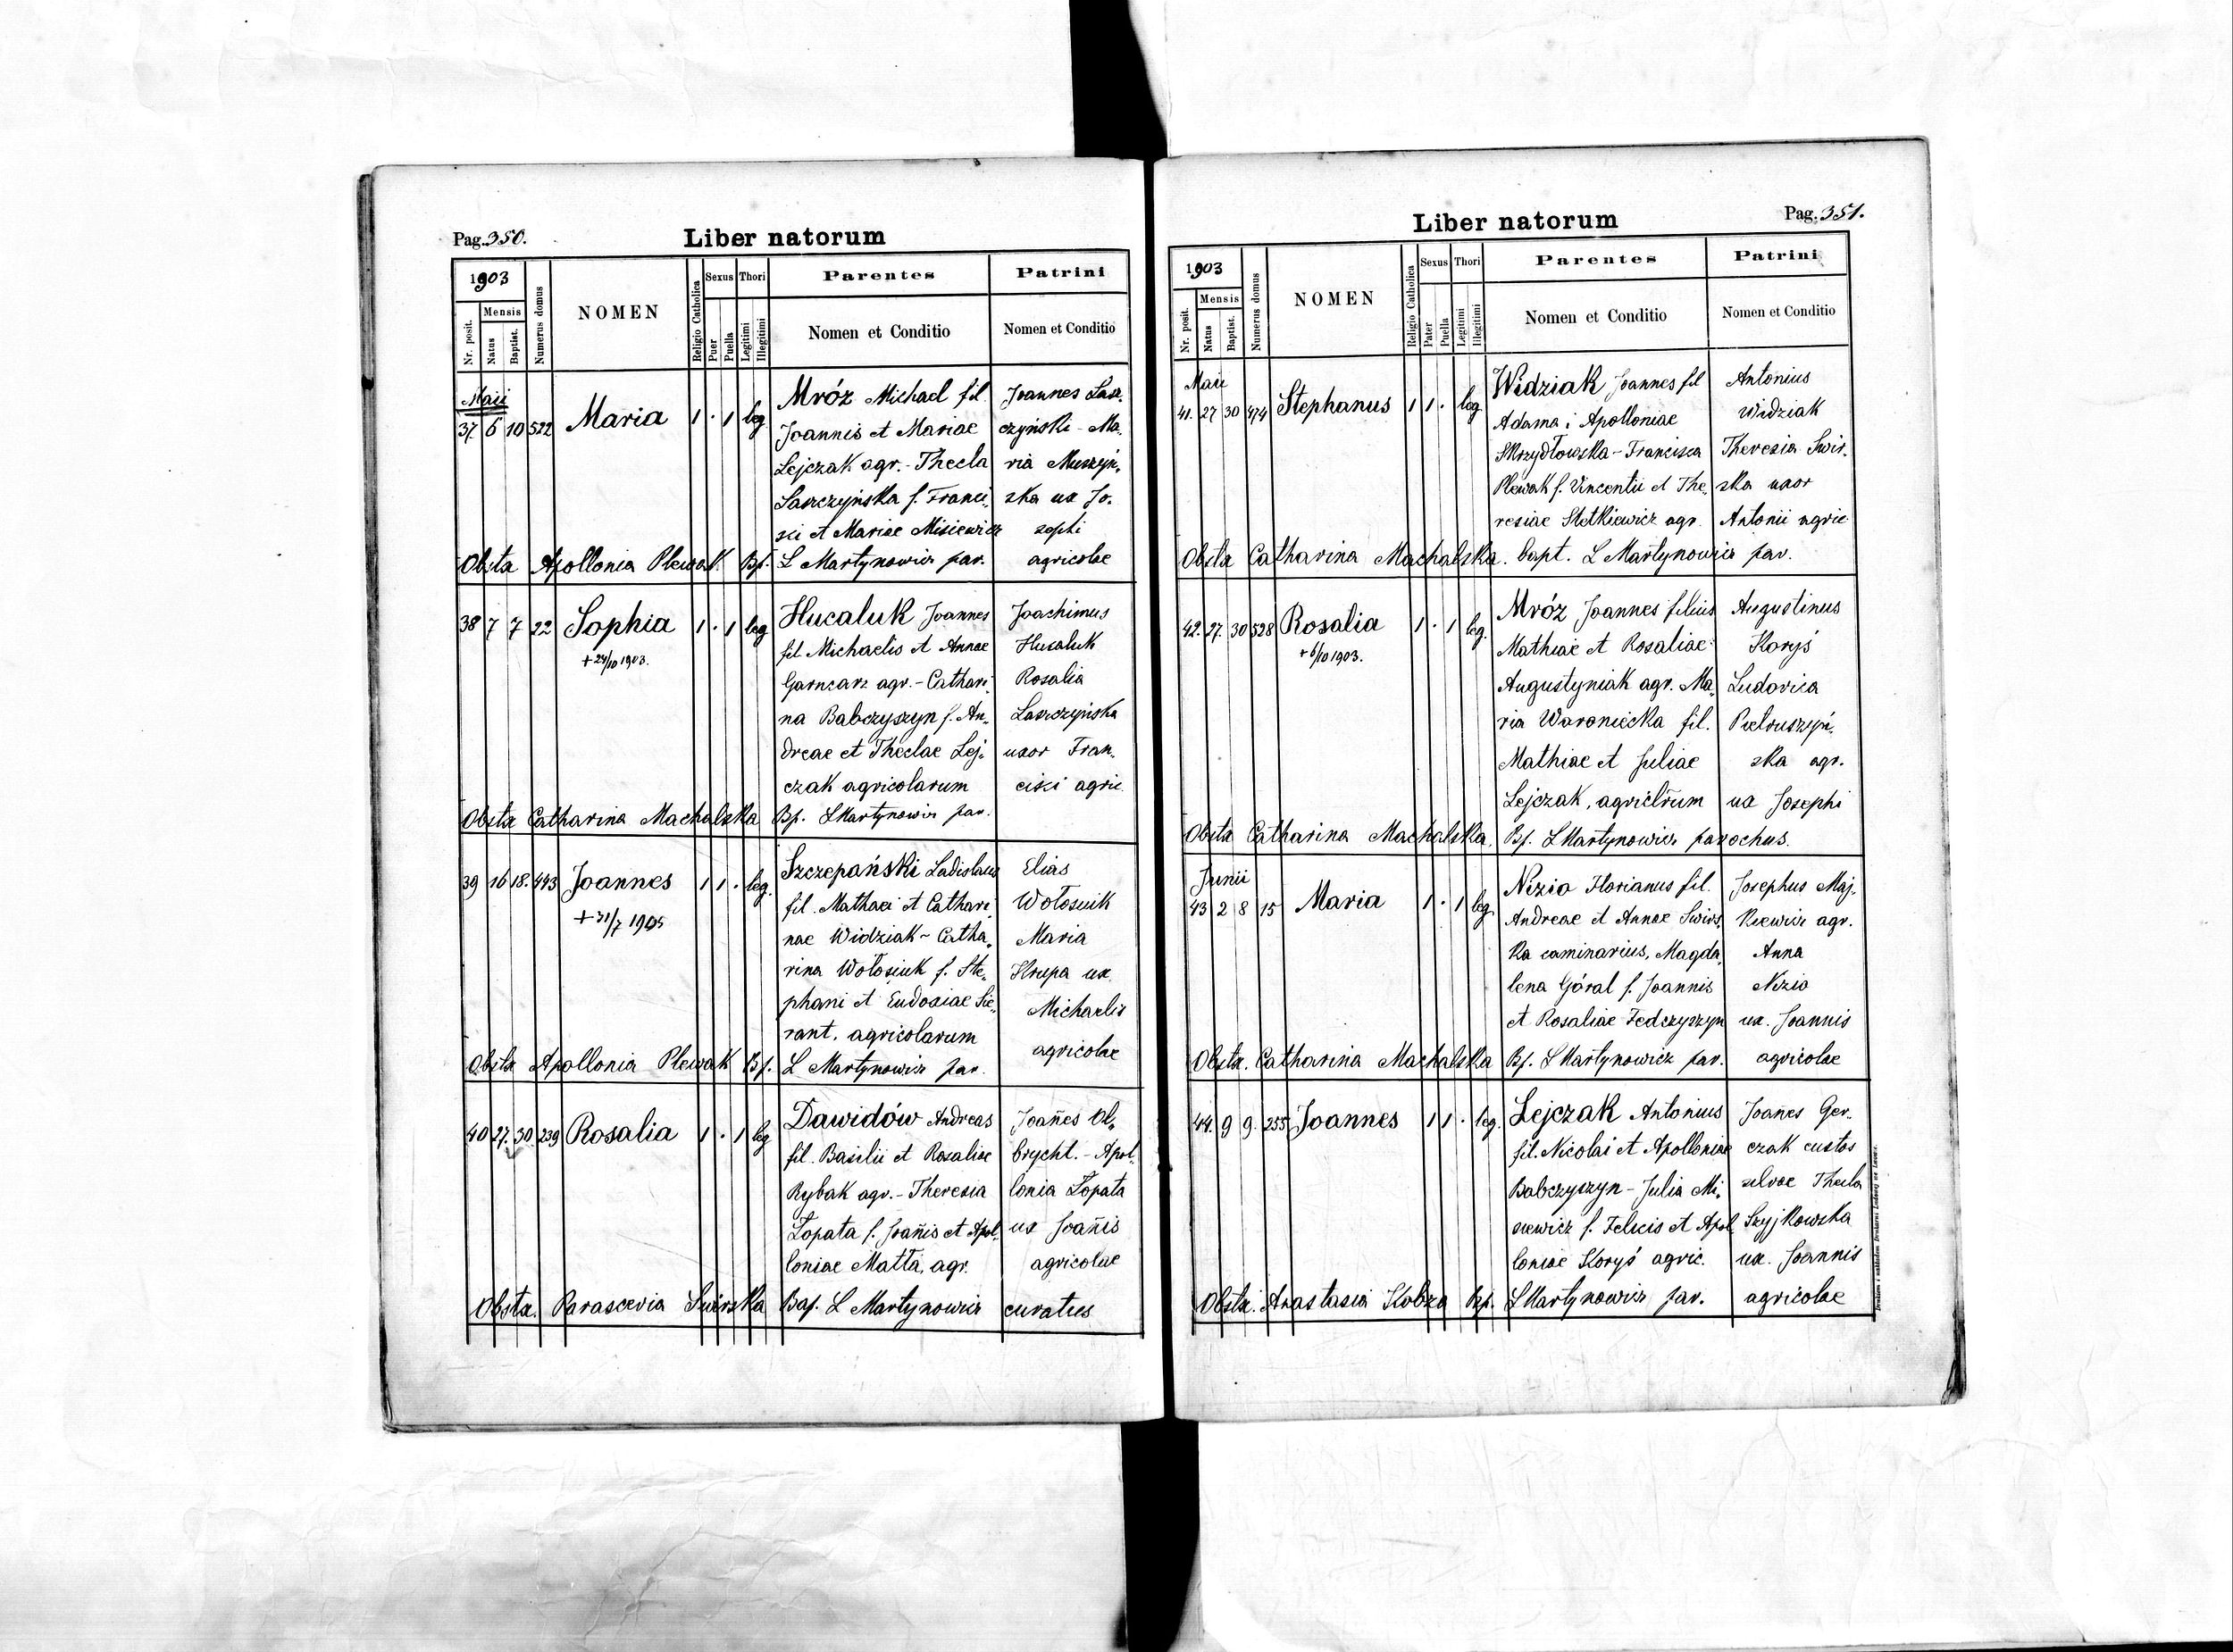 Pag. 350.
Liber natorum
1903
Mensis
Nr. posit.
Natus
Baptist.
Numerus domus
NOMEN
Religio Catholica
Sexus
Puer
Puella
Thori
Legitimi
Illegitimi
Parentes
Nomen et Conditio
Patrini
Nomen et Conditio
Maii
37. 6 10 522 Maria 1 · 1 leg
Mróz Michael fil.
Joannis et Mariae
Lejczak agr. - Thecla
Laszczyńska f. Franci-
sci et Mariae Misiewicz
Joannes Lasz-
czyński - Ma-
ria Muszyń-
ska ux Jo-
sephi
agricolae
Obstx Apollonia Plewak. Bp. L Martynowicz par.
38 7 7 22 Sophia 1 · 1 leg
+ 24/10 1903.
Hucaluk Joannes
fil. Michaelis et Annae
Garncarz agr. - Cathari-
na Babczyszyn f. An-
dreae et Theclae Lej-
czak agricolarum
Joachimus
Hucaluk
Rosalia
Laszczyńska
uxor Fran-
cisci agric.
Obstx Catharina Machalska Bp. L Martynowicz par.
39 16 18. 443 Joannes 1 1 · leg.
+ 31/7 1905
Szczepański Ladislaus
fil. Mathaei et Cathari-
nae Widziak - Catha-
rina Wołosiuk f. Ste-
phani et Eudoxiae Sie-
rant, agricolarum
Elias
Wołosiuk
Maria
Krupa ux.
Michaelis
agricolae
Obstx Apollonia Plewak Bp. L Martynowicz par.
40 27. 30. 239 Rosalia 1 · 1 leg
Dawidów Andreas
fil. Basilii et Rosaliae
Rybak agr. - Theresia
Łopata f. Joañis et Apol-
loniae Matła, agr.
Joañes Ol-
brycht. - Apol-
lonia Łopata
ux Joañis
agricolae
Obstx. Parascevia Świrska Bap. L Martynowicz curatus
Pag. 351.
Liber natorum
1903
Mensis
Nr. posit.
Natus
Baptist.
Numerus domus
NOMEN
Religio Catholica
Sexus
Pater
Puella
Thori
Legitimi
Illegitimi
Parentes
Nomen et Conditio
Patrini
Nomen et Conditio
Maii
41. 27 30 474 Stephanus 1 1 · leg.
Widziak Joannes fil
Adama i Apolloniae
Skrzydłowska - Francisca
Plewak f. Vincentii et The-
resiae Stetkiewicz agr.
Antonius
Widziak
Theresia Swir-
ska uxor
Antonii agric.
Obstx Catharina Machalska. bapt. L Martynowicz par.
42. 27. 30 528 Rosalia 1 · 1 leg.
+ 6/10 1903.
Mróz Joannes filius
Mathiae et Rosaliae
Augustyniak agr. Ma-
ria Waroniecka fil.
Mathiae et Juliae
Lejczak, agricłrum
Augustinus
Koryś
Ludovica
Pietruszyń-
ska agr.
ux Josephi
Obstx Catharina Machalska. Bp. L Martynowicz parochus.
Junii
43 2 8 15 Maria 1 · 1 leg.
Nizio Florianus fil.
Andreae et Annae Swirs-
ka caminarius, Magda-
lena Góral f. Joannis
et Rosaliae Fedczyszyn
Josephus Maj-
kiewicz agr.
Anna
Nizio
ux. Joannis
agricolae
Obstx. Catharina Machalska Bp. L Martynowicz par.
44. 9 9. 255 Joannes 1 1 · leg.
Lejczak Antonius
fil. Nicolai et Apolloniae
Babczyszyn - Julia Mi-
siewicz f. Felicis et Apol-
loniae Koryś agric.
Joañes Ger-
czak custos
silvae Thecla
Szyjkowska
ux. Joannis
agricolae
Obstx. Anastasia Kobza Bp. L Martynowicz par.